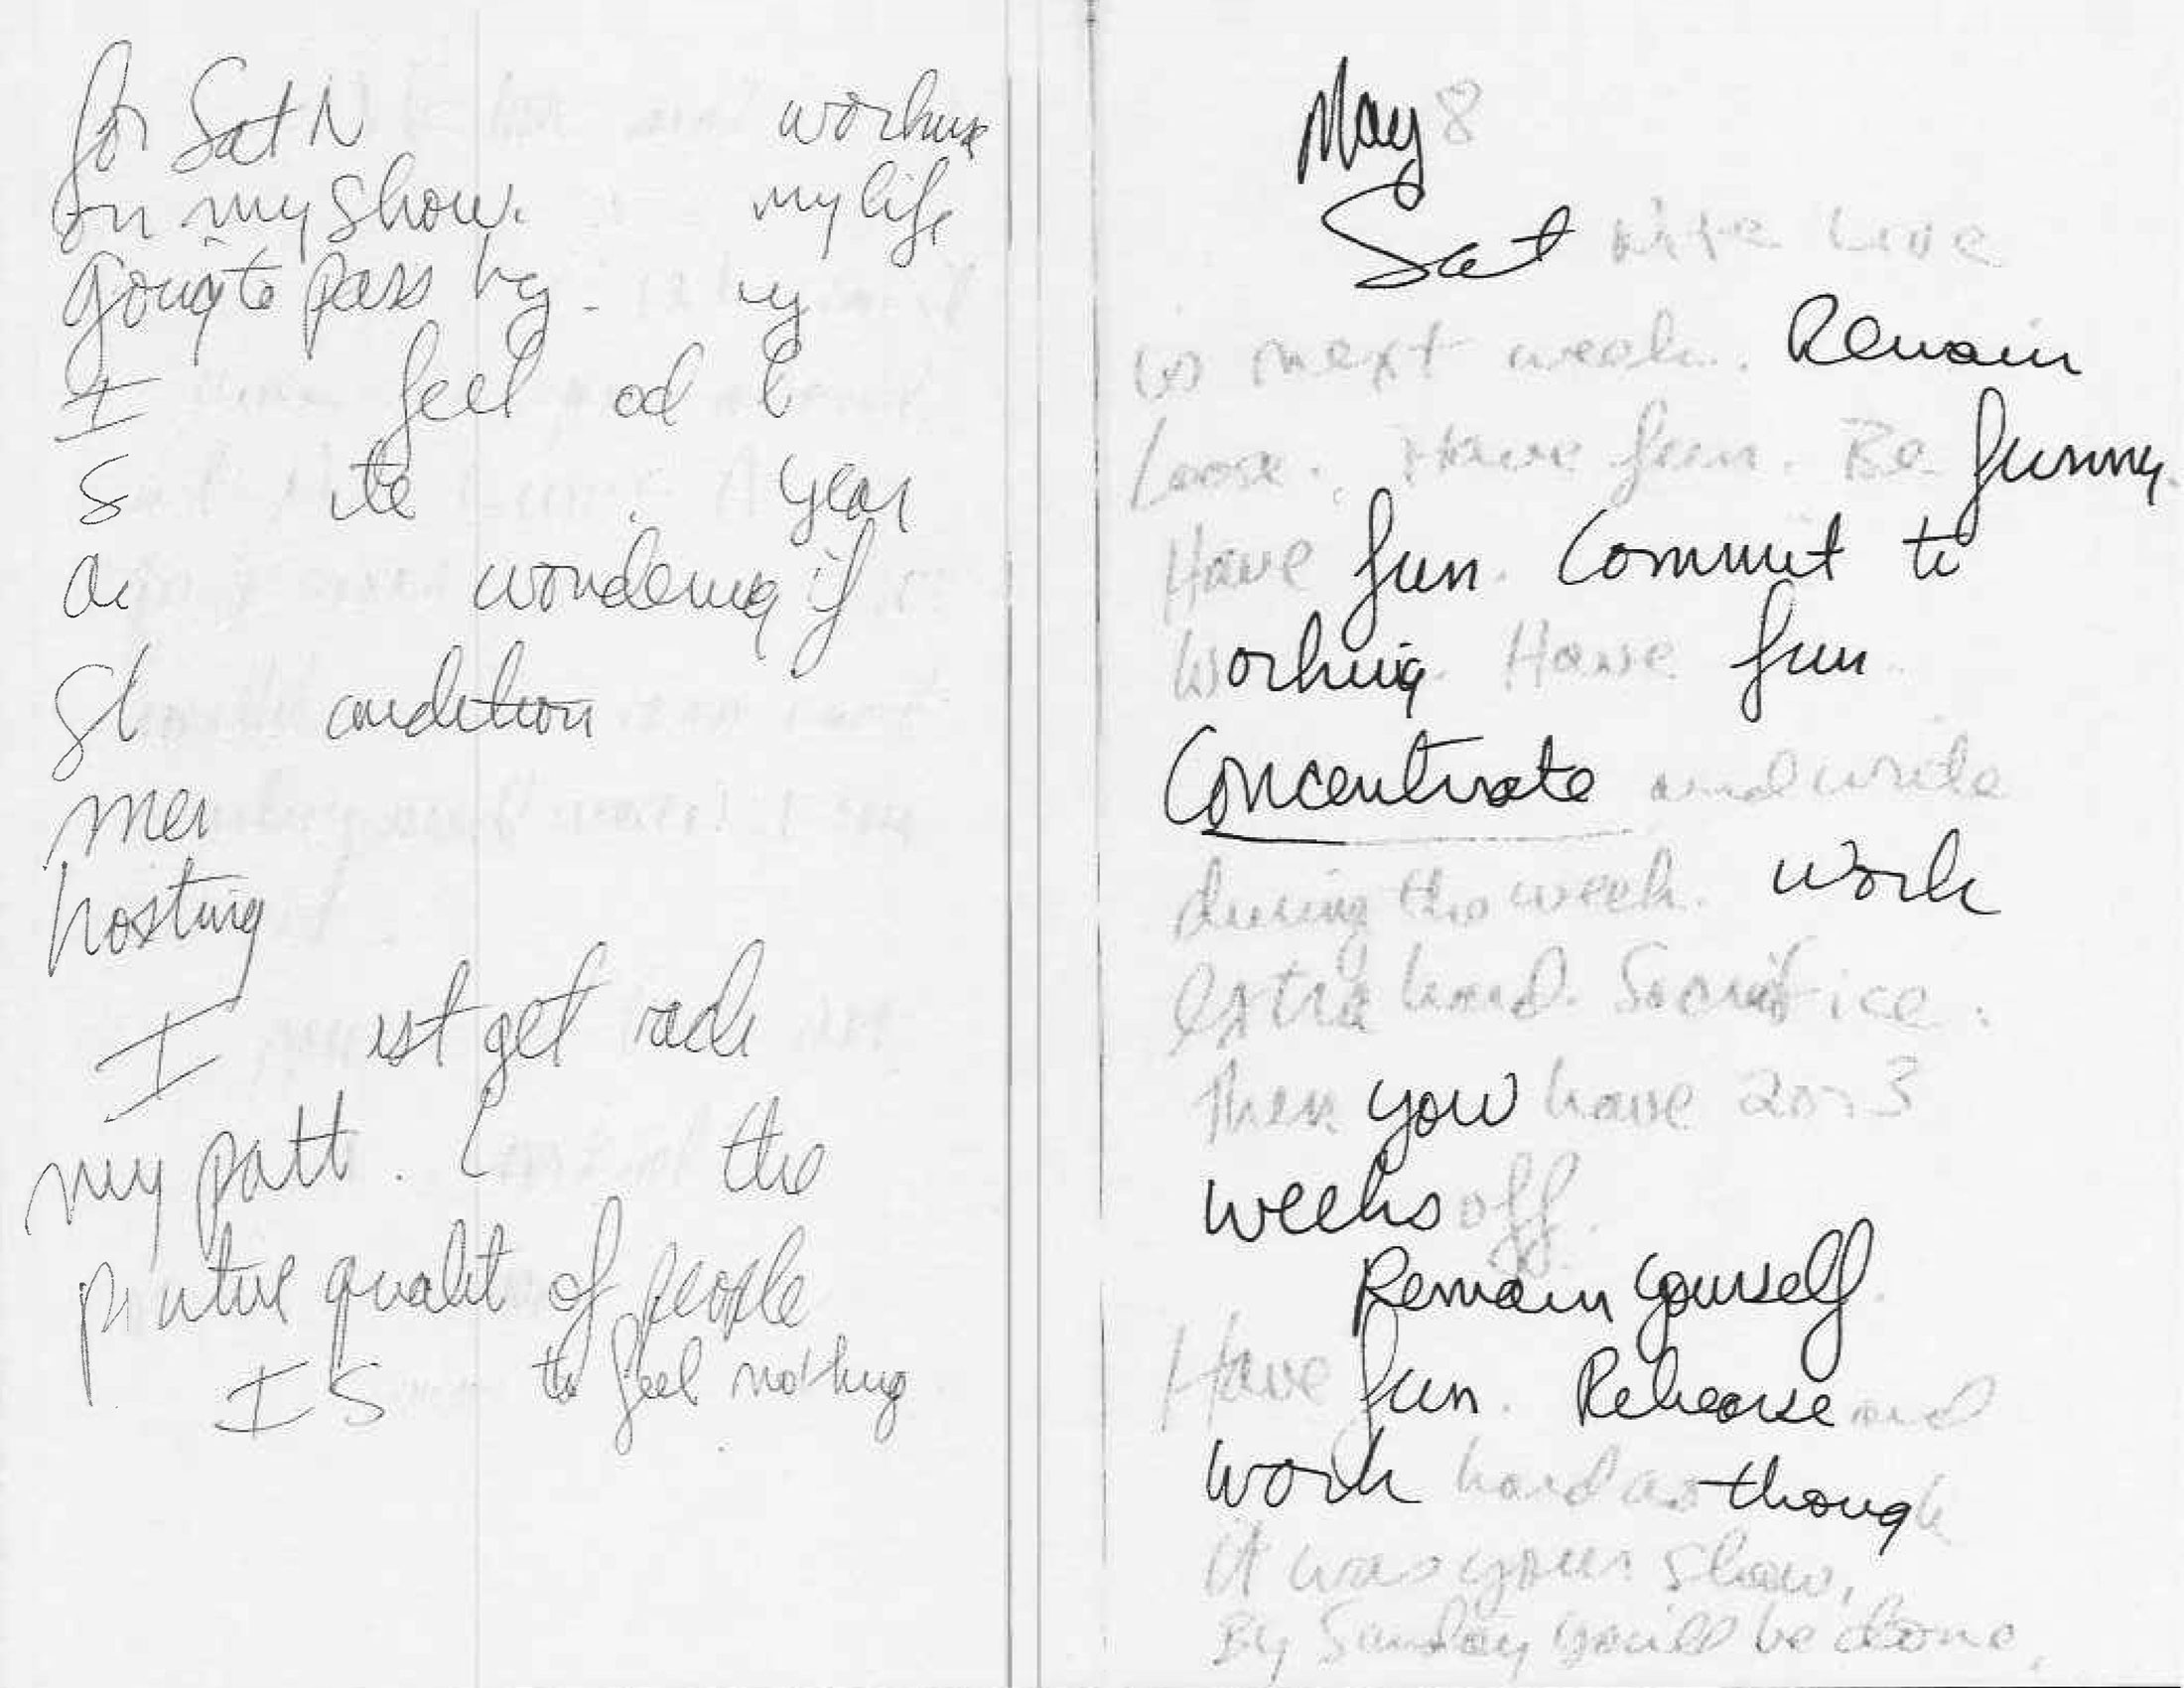 for Sat N workin
on my show. my life
going to pass by - my
I feel od b
S ite year
a wondering if
st condition
mer
hosting
I ust get rack
my patt . the
p ntue qualit of people
I S to feel nothing
May 8
Sat Nite Live
is next week. Remain
Loose. Have fun. Be funny.
Have fun. Commit to
Working. Have fun
Concentrate and write
during the week. Work
extra hard. Sacrifice.
Then you have 2 or 3
weeks off.
Remain yourself.
Have fun. Rehearse and
work hard as though
it was your show.
By Sunday you'll be done.